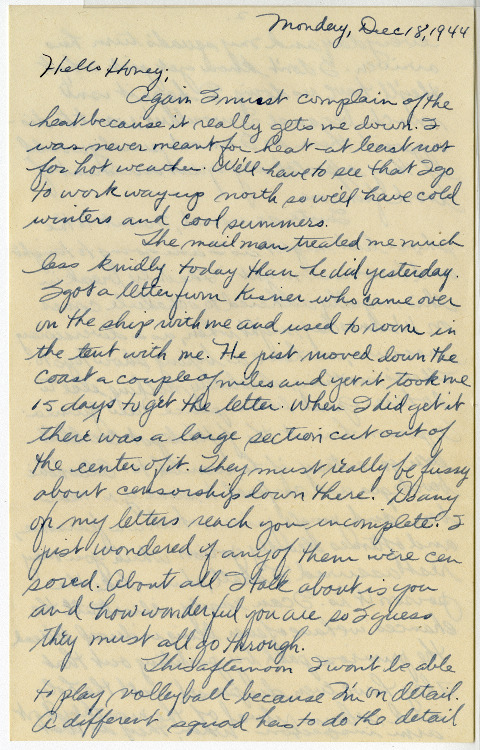 Monday, Dec 18, 1944
Hello Honey;
Again I must complain of the
heat because it really gets me down. I
was never meant for heat - at least not
for hot weather. We'll have to see that I go
to work way up north so we'll have cold
winters and cool summers.
The mailman treated me much
less kindly today than he did yesterday.
I got a letter from Kisner who came over
on the ship with me and used to room in
the tent with me. He just moved down the
coast a couple of miles and yet it took me
15 days to get the letter. When I did get it
there was a large section cut out of
the center of it. They must really be fussy
about censorship down there. Do any
of my letters reach you incomplete? I
just wondered if any of them were cen
sored. About all I talk about is you
and how wonderful you are so I guess
they must all go through.
This afternoon I won't be able
to play volleyball because I'm on detail.
A different squad has to do the detail